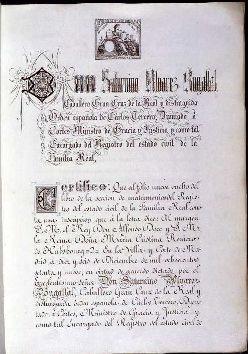 Don Saturnino Alvarez Bugallal
Caballero Gran Cruz de la Real y distinguida
Orden española de Carlos Tercero, Diputado á
Cortes, Ministro de Gracia y Justicia, y como tal
Encargado del Registro del estado civil de la
Familia Real,
Certifico: Que al folio nueve vuelto del
libro de la sección de matrimonios del Regis-
tro del estado civil de la Familia Real cons-
ta una inscripcion que á la letra dice: Al margen
S. M. el Rey Don Alfonso Doce y S. M.
la Reina Doña Maria Cristina Reniero
de Habsbourg. En la Villa y Corte de Madrid
á diez y seis de Diciembre de mil ochocientos
setenta y nueve; en virtud de acuerdo dictado por el
Excelentisimo Señor Don Saturnino Alvarez
Bugallal, Caballero Gran Cruz de la Real y
distinguida Orden española de Carlos Tercero, Dipu-
tado á Cortes, Ministro de Gracia y Justicia y
como tal Encargado del Registro del estado civil de